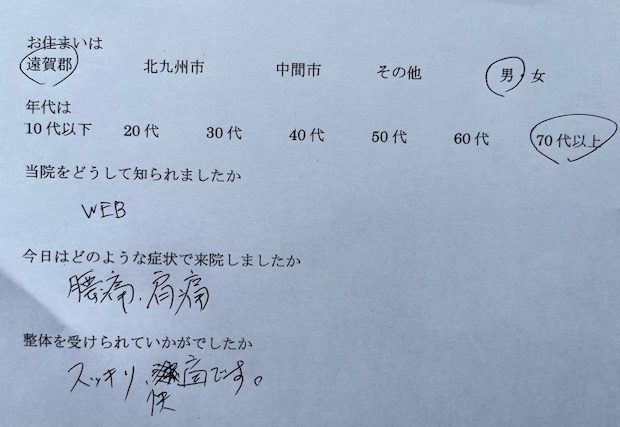 お住まいは
遠賀郡 北九州市 中間市 その他 男・女
年代は
10代以下 20代 30代 40代 50代 60代 70代以上
当院をどうして知られましたか
WEB
今日はどのような症状で来院しましたか
腰痛、肩痛
整体を受けられていかがでしたか
スッキリ、快適です。